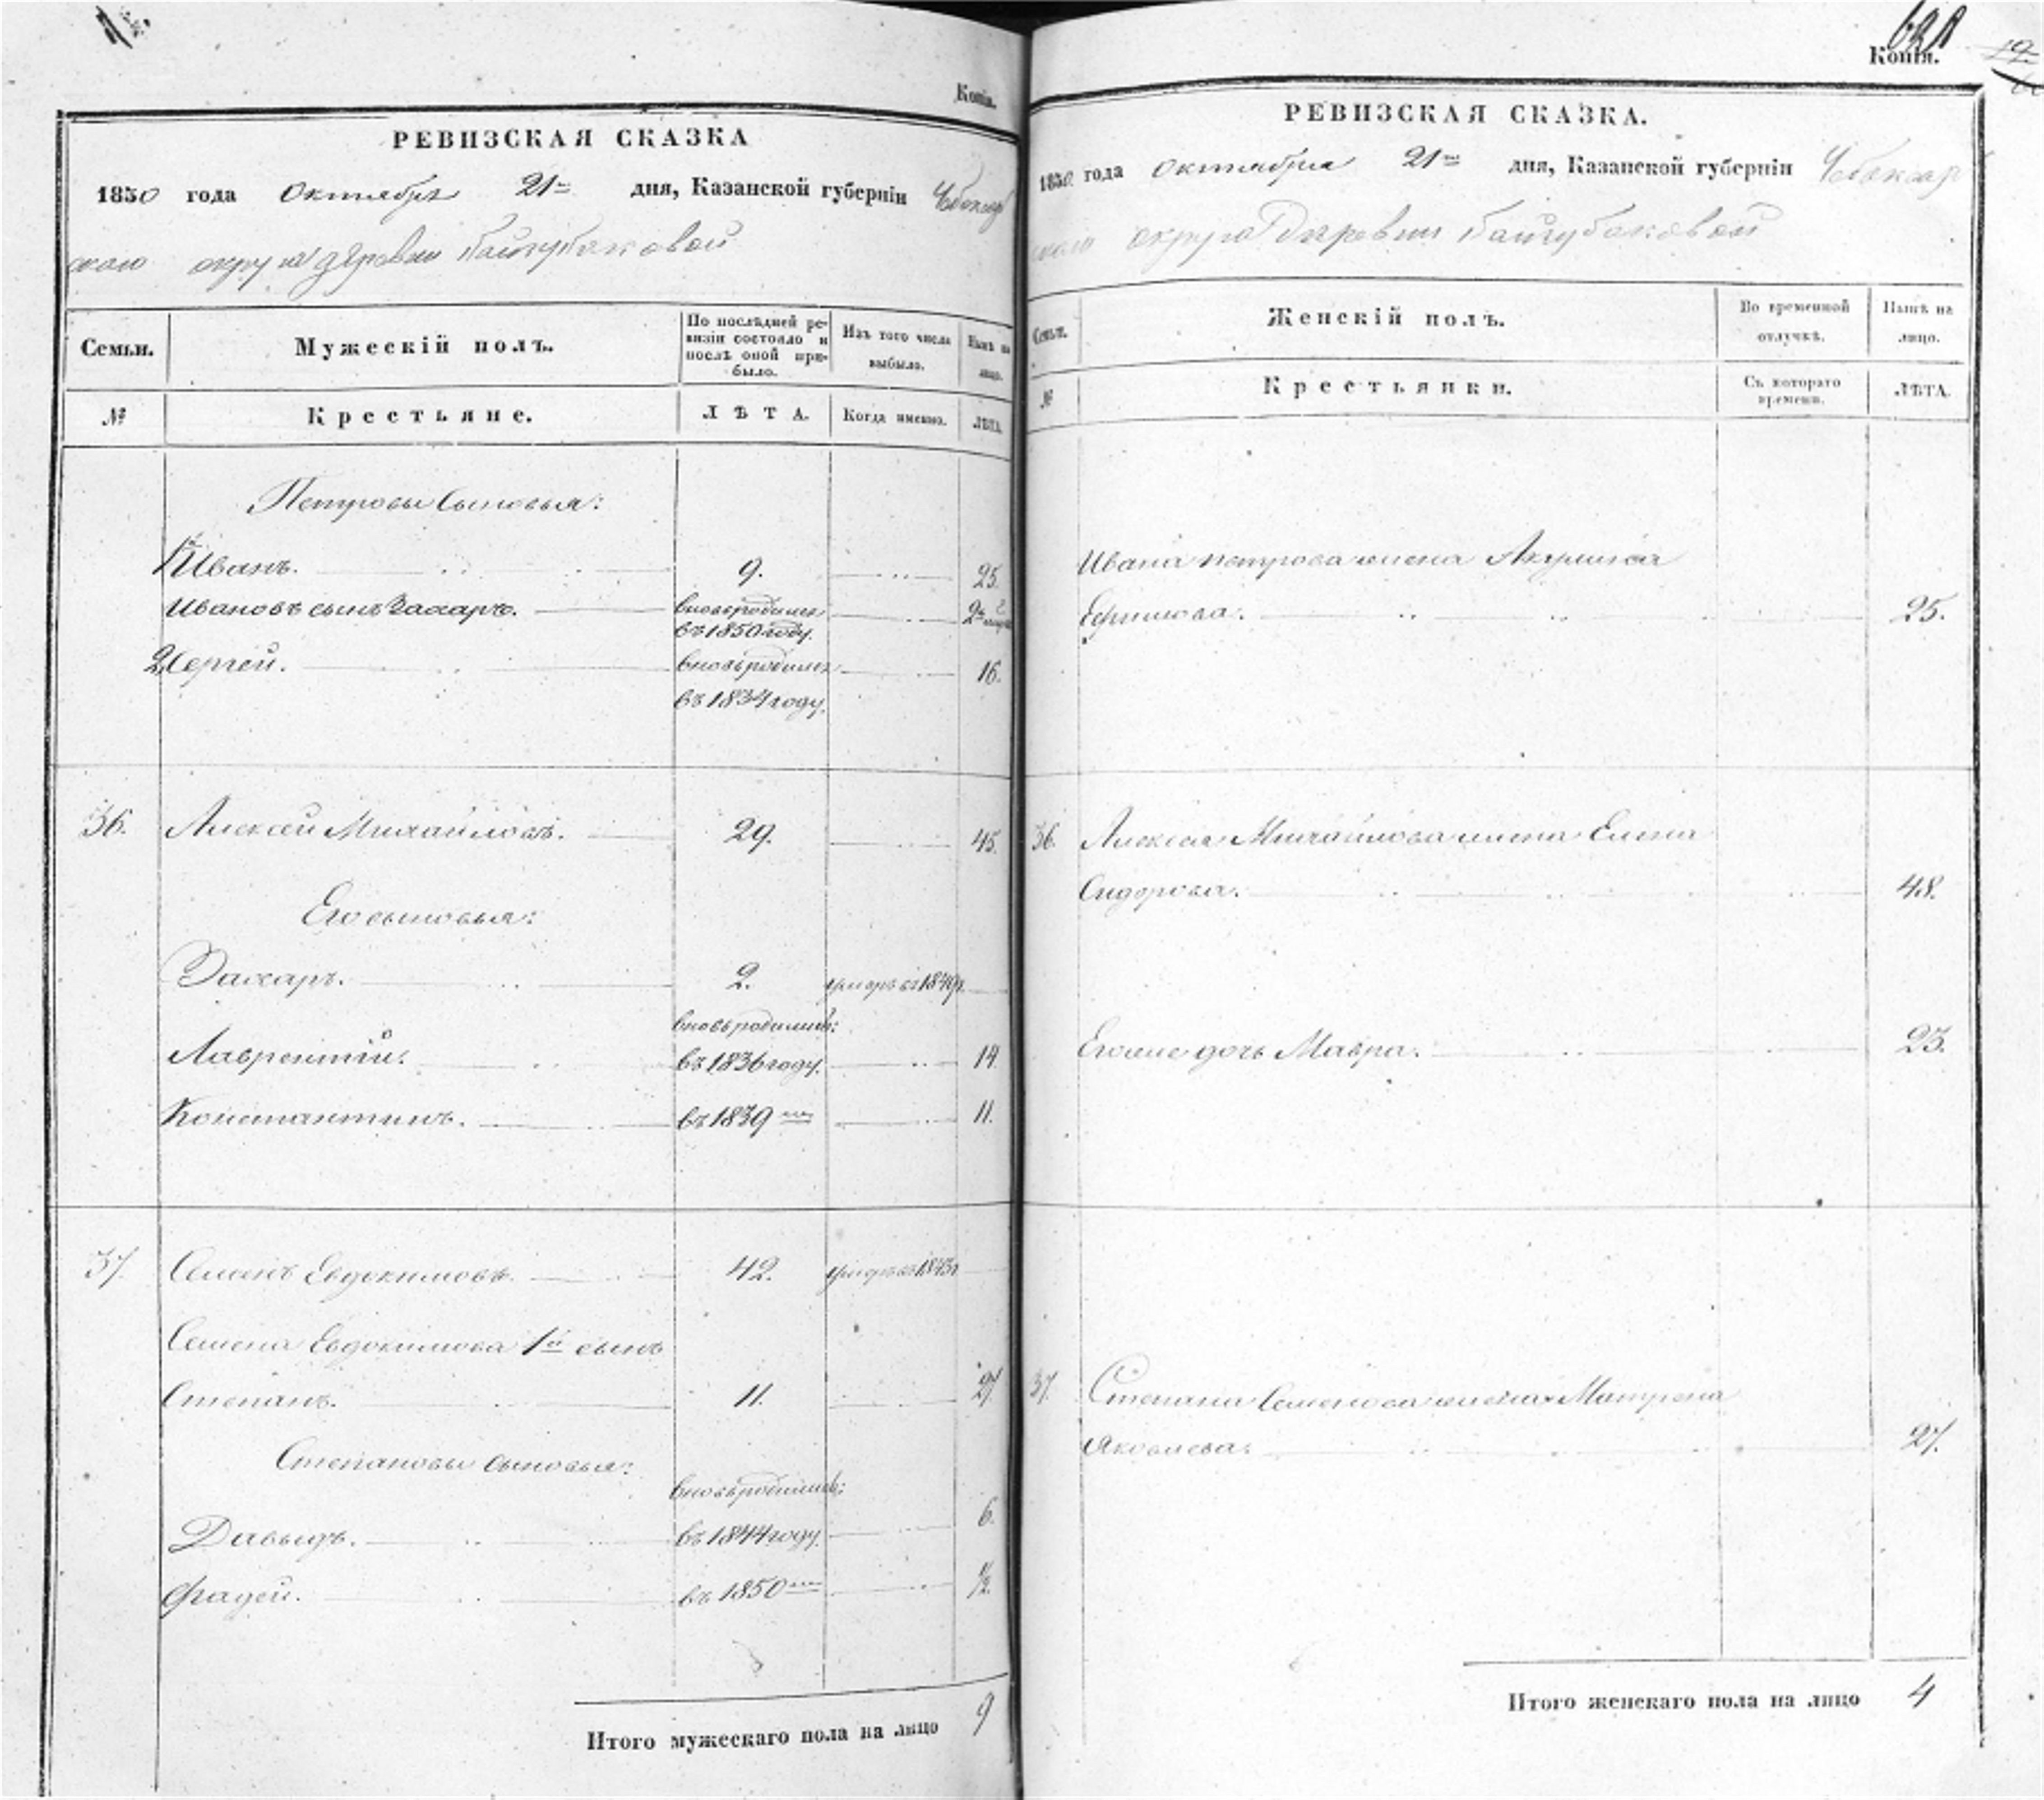 Копія.
РЕВИЗСКАЯ СКАЗКА
1850 года Октября 21го дня, Казанской губерніи Чебоксар
скаго округа деревни Байгубаковой
Семьи. Мужескій полъ. По послѣдней ревизіи состояло и послѣ оной прибыло. Изъ того числа выбыло. Нынѣ на лицо.
№ Крестьяне. ЛѢТА. Когда именно. ЛѢТА.
Петровы сыновья:
1й Иванъ. 9. 25.
Ивановъ сынъ Захаръ. вновь родилъ
въ 1850 году.
2. Сергей. вновь родилъ 16.
въ 1834 году.
36. Алексей Михайловъ. 29. 45.
Его сыновья:
Захаръ. 2. умеръ въ 1849 г.
вновь родились:
Лаврентій. въ 1836 году. 14.
Константинъ. въ 1839 11.
37. Семенъ Евдокимовъ. 42. умеръ въ
Семена Евдокимова 1й сынъ
Степанъ. 11. 27.
Степановы сыновья:
вновь родились:
Давыдъ. въ 1844 году. 6.
Фадей. въ 1850 1/2.
Итого мужескаго пола на лицо 9
Копія.
РЕВИЗСКАЯ СКАЗКА.
1850 года Октября 21го дня, Казанской губерніи Чебоксар
скаго округа Деревни Байгубаковой
Семьи. Женскій полъ. Во временной отлучкѣ. Нынѣ на лицо.
№ Крестьянки. Съ котораго времени. ЛѢТА.
Ивана Петрова жена Акулина
Ефимова. 25.
36. Алексея Михайлова жена Елена
Сидорова. 48.
Его же дочь Мавра. 23.
37. Степана Семенова жена Матрена
Яковлева. 27.
Итого женскаго пола на лицо 4